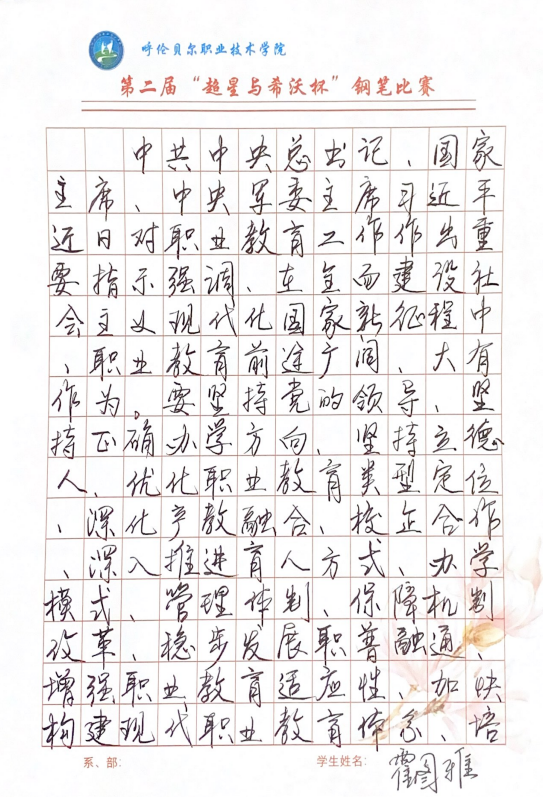 呼伦贝尔职业技术学院
第二届“超星与希沃杯”钢笔比赛
中共中央总书记、国家
主席、中央军委主席习近平
近日对职业教育工作作出重
要指示强调、在全面建设社
会主义现代化国家新征程中
、职业教育前途广阔、大有
作为。要坚持党的领导、坚
持正确办学方向、坚持立德
人、优化职业教育类型定位
、深化产教融合、校企合作
、深入推进育人方式、办学
模式、管理体制、保障机制
改革、稳步发展职普融通、
增强职业教育适应性、加快
构建现代职业教育体系、培
系、部:
学生姓名: 霍图雅